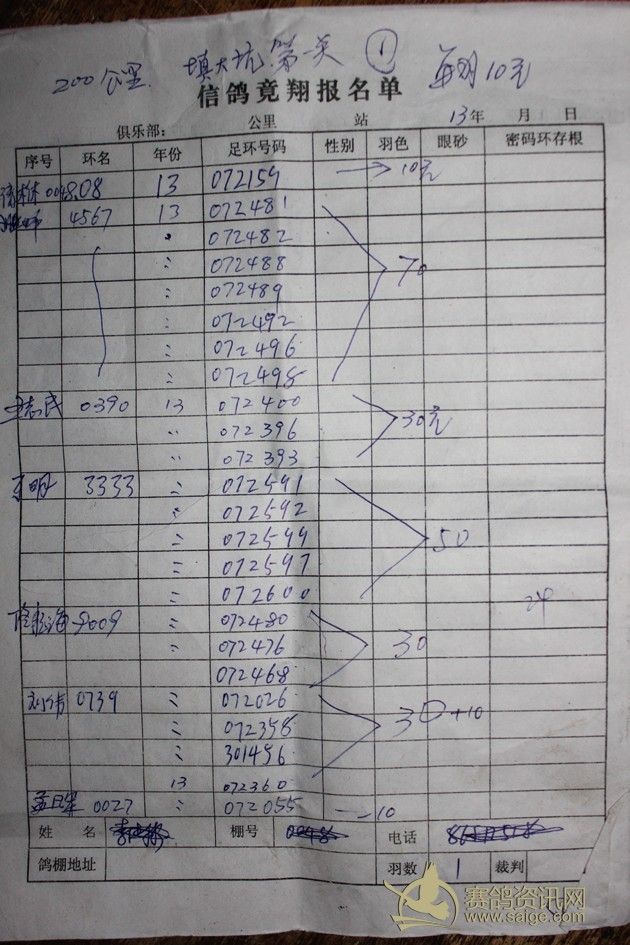 200公里 填大坑 第一关 ① 每羽10元
信鸽竞翔报名单
俱乐部： 公里 站 13年 月 日
序号 环名 年份 足环号码 性别 羽色 眼砂 密码环存根
13 072159 10元
4567 13 072481
072482
〃 072488
〃 072489
〃 072492 70
〃 072496
〃 072498
0390 13 072400
〃 072396 30元
〃 072393
3333 〃 072591
〃 072592
〃 072599 50
〃 072597
〃 072600
9009 〃 072480
〃 072476 30
072468
0739 〃 072026
〃 072358 30+10
〃 301456
13 072360
0027 〃 072055 10
姓 名 棚号 电话
鸽棚地址 羽数 1 裁判
赛鸽资讯网
www.saige.com